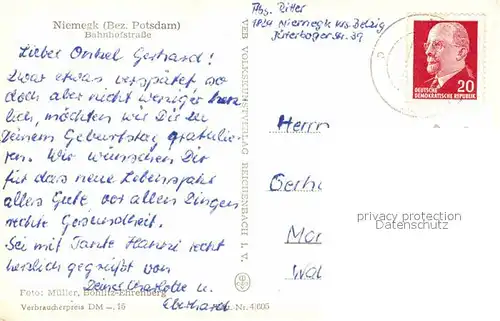 Niemegk (Bez. Potsdam)
Bahnhofstraße
Lieber Onkel Gerhard!
Zwar etwas verspätet so
doch aber nicht weniger herz
lich, möchten wir Dir zu
Deinem Geburtstag gratulie-
ren. Wir wünschen Dir
für das neue Lebensjahr
alles Gute vor allen Dingen
rechte Gesundheit.
Sei mit Tante Hanni recht
herzlich gegrüßt von
Deine Charlotte u.
Eberhard
Foto: Müller, Böhlitz-Ehrenberg
Verbraucherpreis DM —.16
Nr. 4/605
VEB VOLKSKUNSTVERLAG REICHENBACH I. V.
Abs. Ritter
Niemegk Krs. Belzig
Jüterboger Str. 39
20
DEUTSCHE
DEMOKRATISCHE REPUBLIK
Herrn
Gerha
privacy protection
Datenschutz